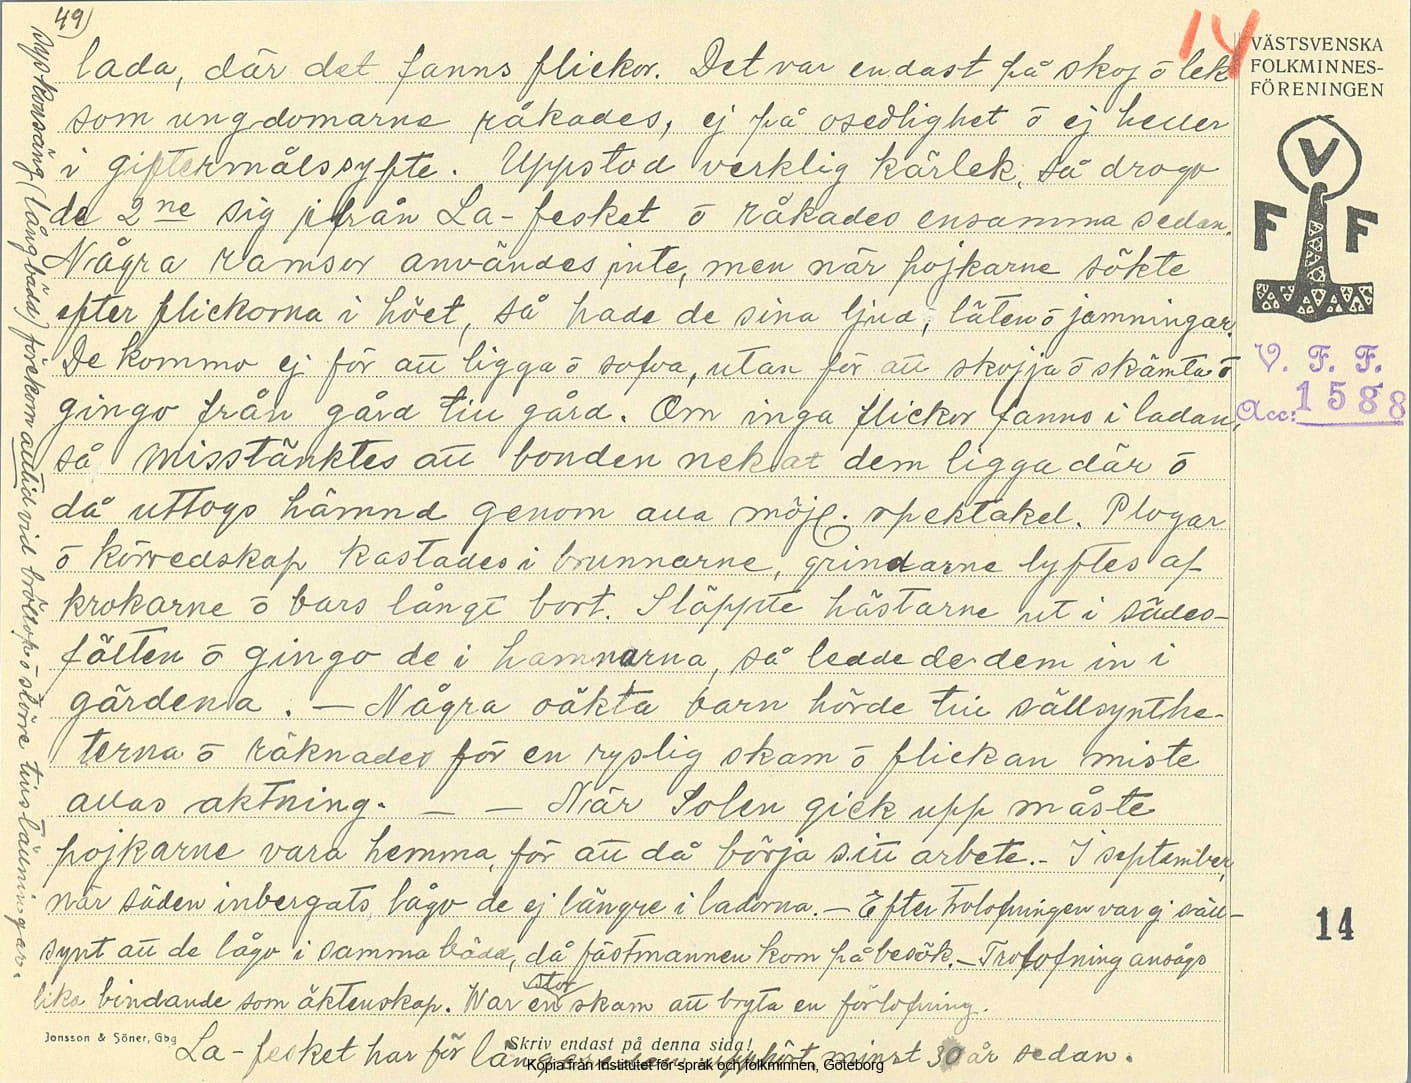 49)
14
lada, där det fanns flickor. Det var endast på skoj ō lek
som ungdomarne råkades, ej på osedlighet ō ej heller
i giftermålssyfte. Uppstod verklig kärlek, så drogo
de 2ne sig ifrån La-fesket ō råkades ensamma sedan.
Några ramsor användes inte, men när pojkarne sökte
efter flickorna i höet, så hade de sina ljud, läten ō jamningar.
De kommo ej för att ligga ō sofva, utan för att skojja ō skämta ō
gingo från gård till gård. Om inga flickor fanns i ladan,
så misstänktes att bonden nekat dem ligga där ō
då uttogs hämnd genom alla möjl. spektakel. Plogar
ō körredskap kastades i brunnarne, grindarne lyftes af
krokarne ō bars långt bort. Släppte hästarne ut i sädes-
fälten ō gingo de i hamnarna, så ledde de dem in i
gärdena. — Några oäkta barn hörde till sällsynthe-
terna ō räknades för en ryslig skam ō flickan miste
allas aktning. — — När Solen gick upp måste
pojkarne vara hemma, för att då börja sitt arbete. - I september,
när säden inbergats, lågo de ej längre i ladorna. — Efter trolofningen var ej säll-
synt att de lågo i samma bädd, då fästmannen kom på besök. — Trolofning ansågs
lika bindande som äktenskap. War en stor skam att bryta en förlofning.
La-fesket har för längesedan upphört, minst 30 år sedan.
Syskonsäng (långbädd) förekom alltid vid bröllop ō större tillställningar.
VÄSTSVENSKA
FOLKMINNES-
FÖRENINGEN
V
F F
V. F. F.
Acc: 1588
14
Jonsson & Söner, Gbg
Skriv endast på denna sida!
Kopia från Institutet för språk och folkminnen, Göteborg